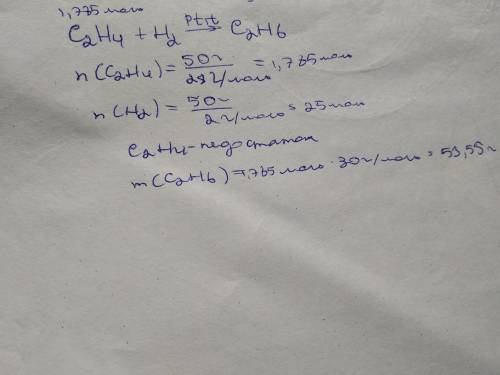 1,785 моль
C2H4 + H2 Pt,t→ C2H6
n(C2H4) = 50г / 28г/моль = 1,785 моль
n(H2) = 50г / 2г/моль = 25 моль
C2H4 - недостаток
m(C2H6) = 1,785 моль · 30г/моль = 53,55г